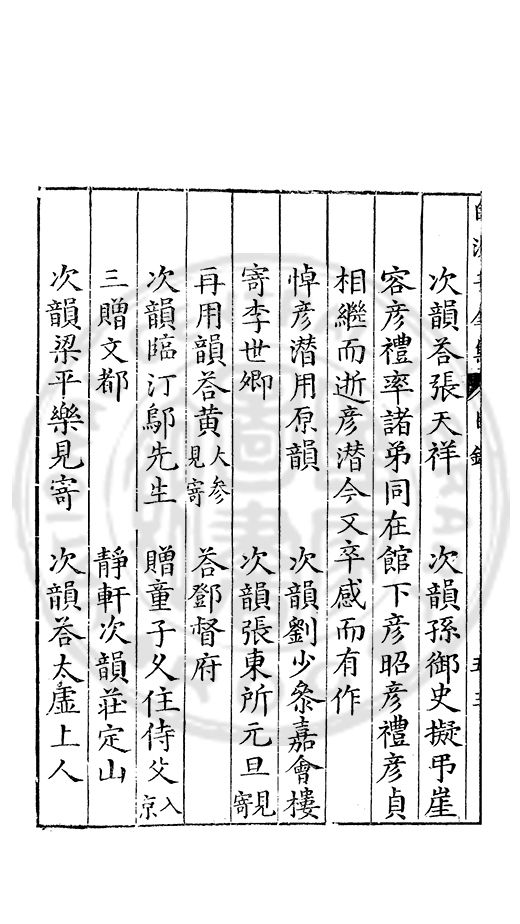 次韻荅張天祥　次韻孫御史擬弔崖
容彥禮率諸弟同在館下彥昭彥禮彥貞
相繼而逝彥潜今又卒感而有作
悼彥潜用原韻　次韻劉少叅嘉會樓
寄李世卿　次韻張東所元旦見寄
再用韻荅黃大參見寄　荅鄧督府
次韻臨汀鄔先生　贈童子乆住侍父入京
三贈文都　靜軒次韻莊定山
次韻梁平樂見寄　次韻荅太虛上人